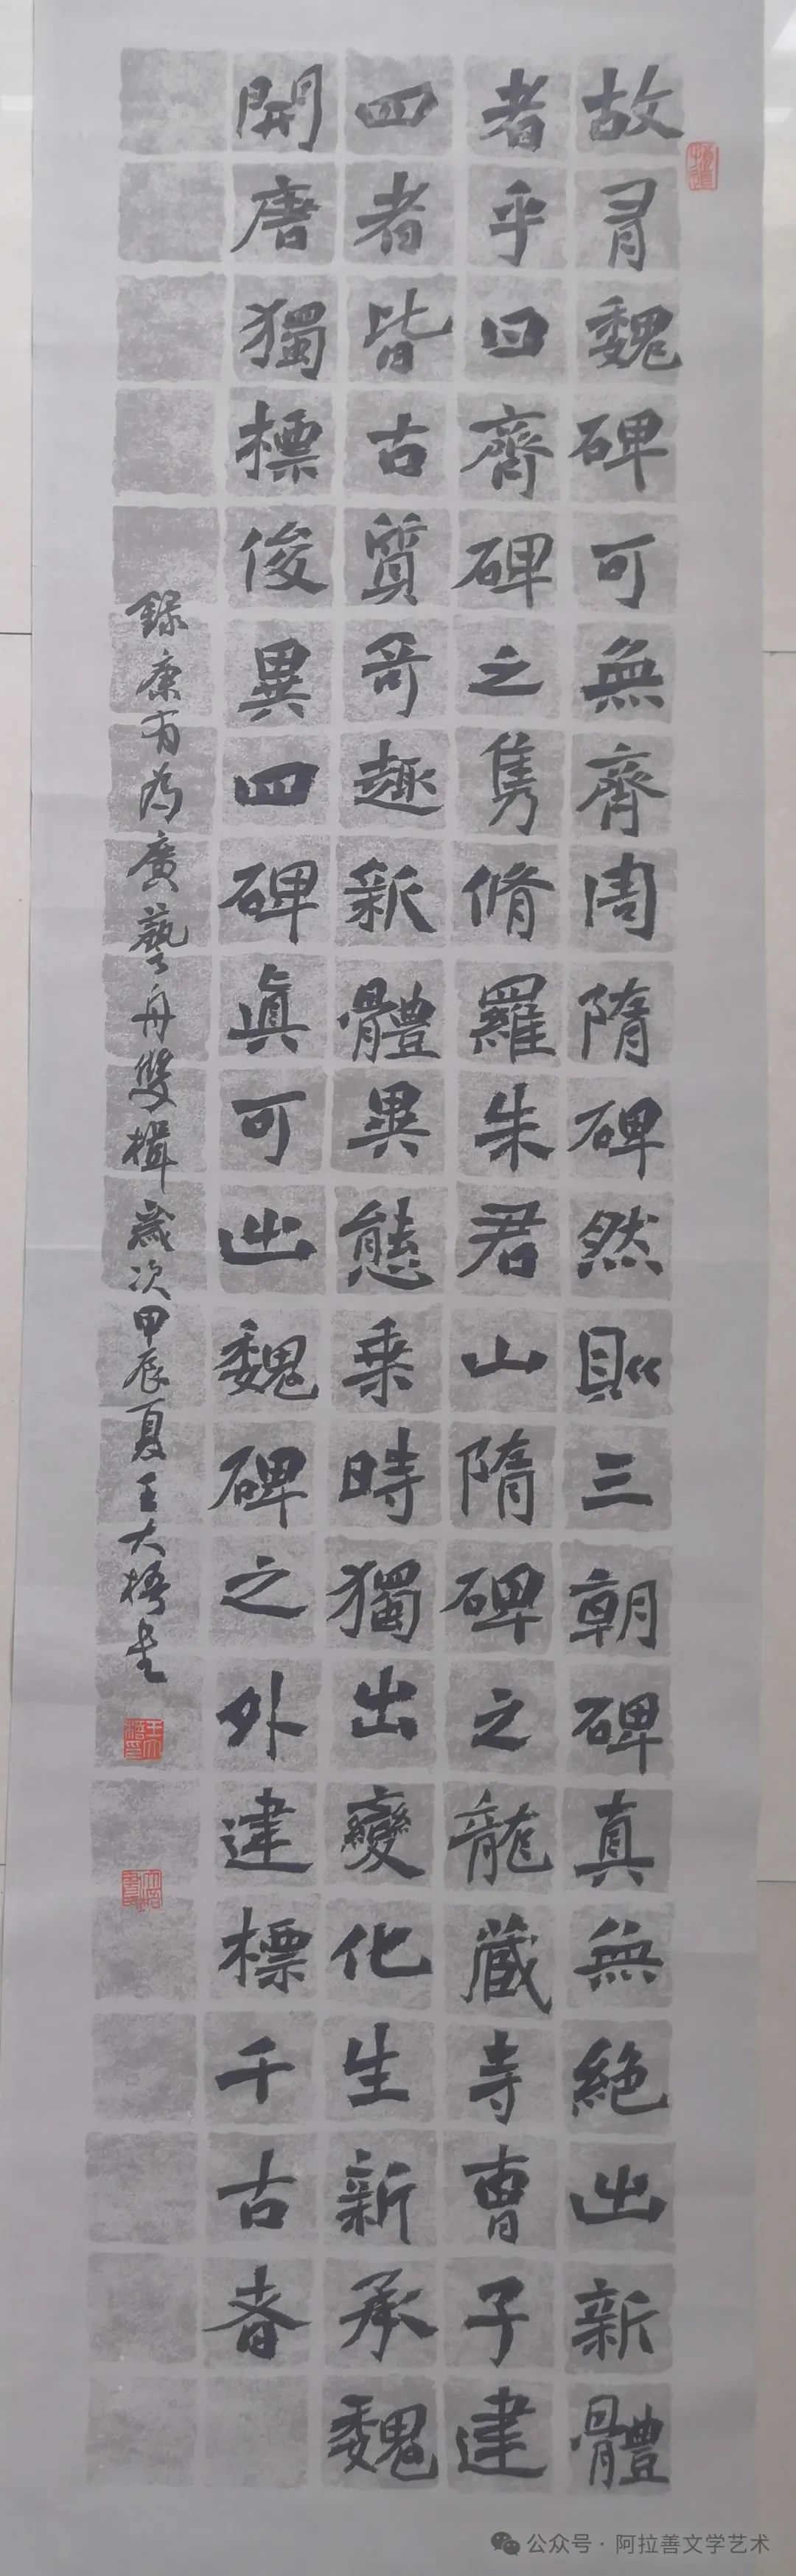 故有魏碑可無齊周隋碑然則三朝碑真無絕出新體
者乎曰齊碑之雋脩羅朱君山隋碑之龍藏寺曹子建
四者皆古質奇趣新體異態乘時獨出變化生新承魏
開唐獨標俊異四碑真可出魏碑之外建標千古者
錄康有為廣藝舟雙楫歲次甲辰夏王大梧書
公众号·阿拉善文学艺术